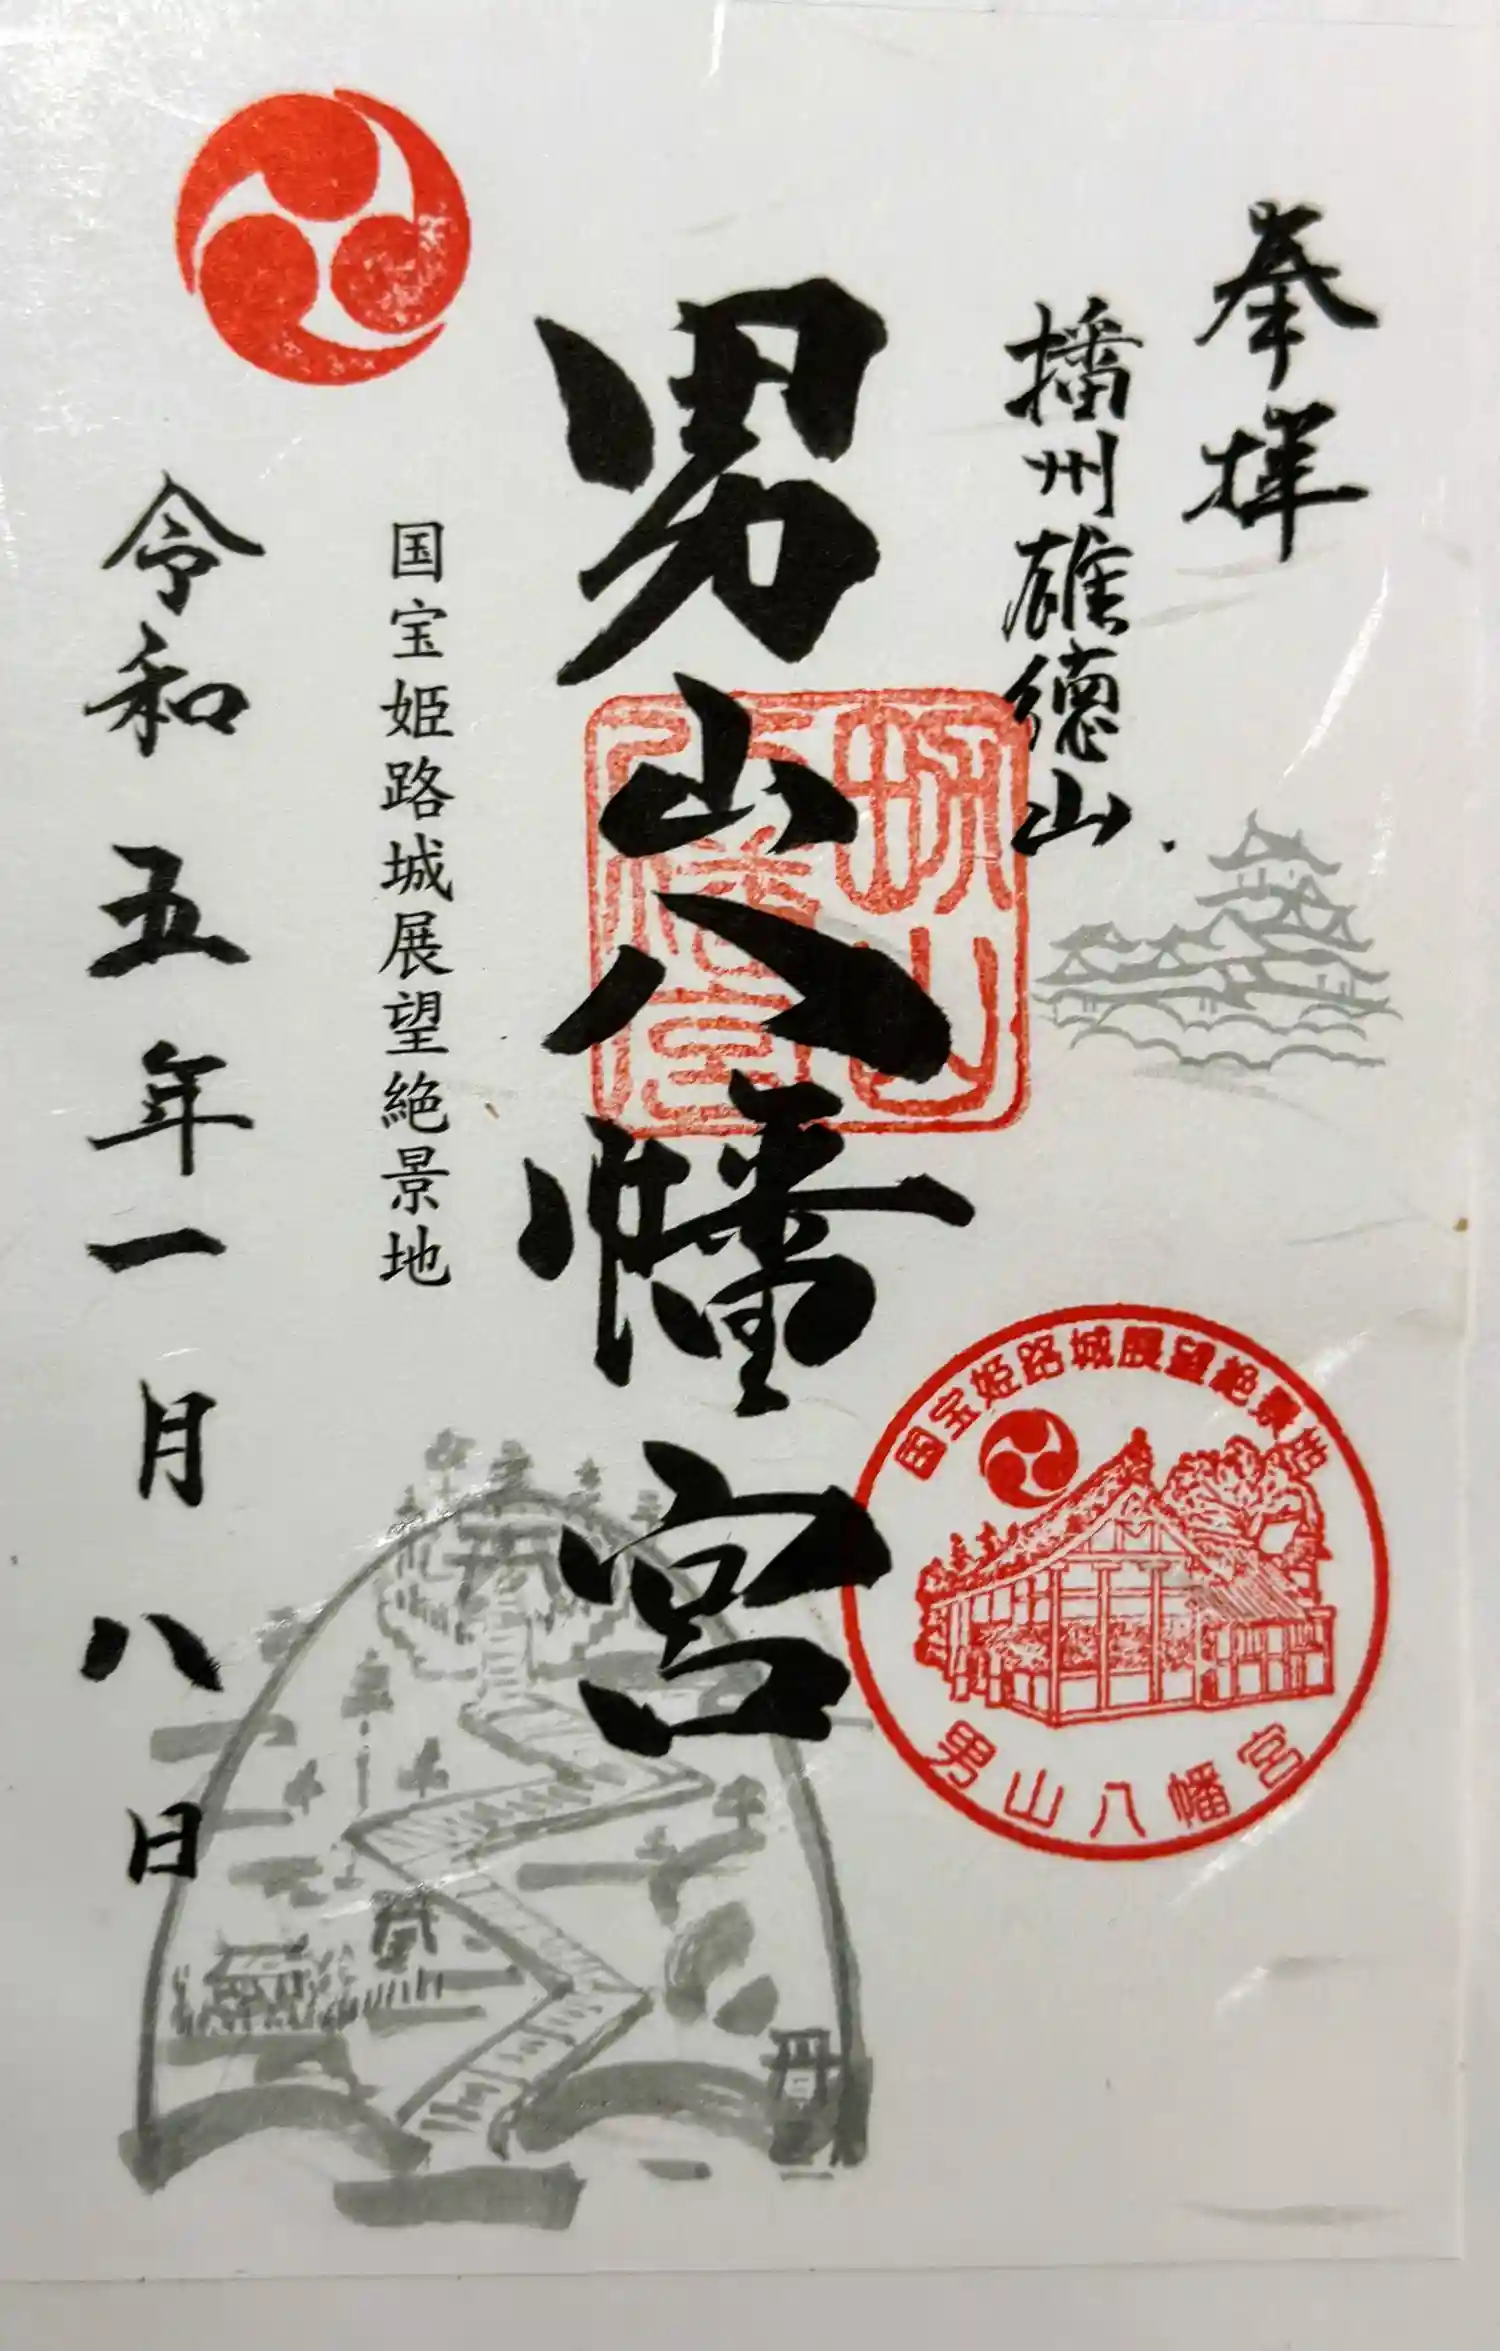 奉拝
播州雄徳山
男山八幡宮
男山八幡宮
国宝姫路城展望絶景地
令和五年一月八日
国宝姫路城展望絶景地
男山八幡宮